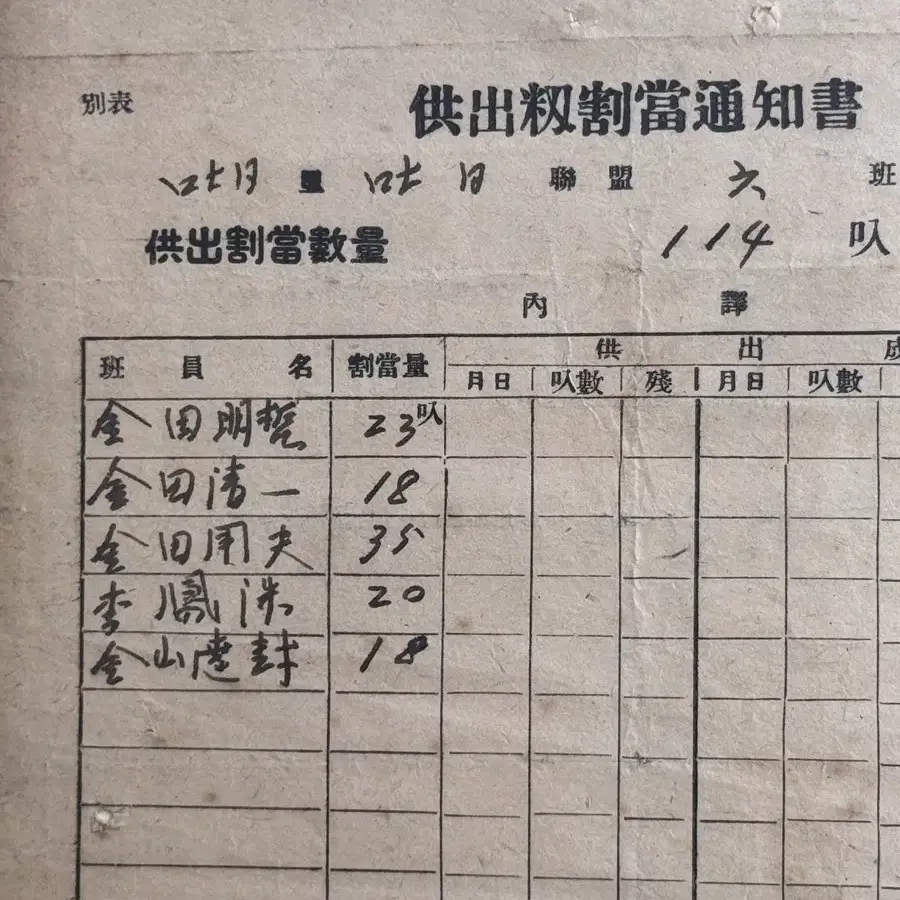 別表
供出籾割當通知書
里 聯盟 六 班
供出割當數量 114 叺
內譯
班員名 割當量 供出成
月日 叺數 殘 月日 叺數
金田明哲 23叺
金田清一 18
金田用夫 35
李鳳洙 20
金山 18